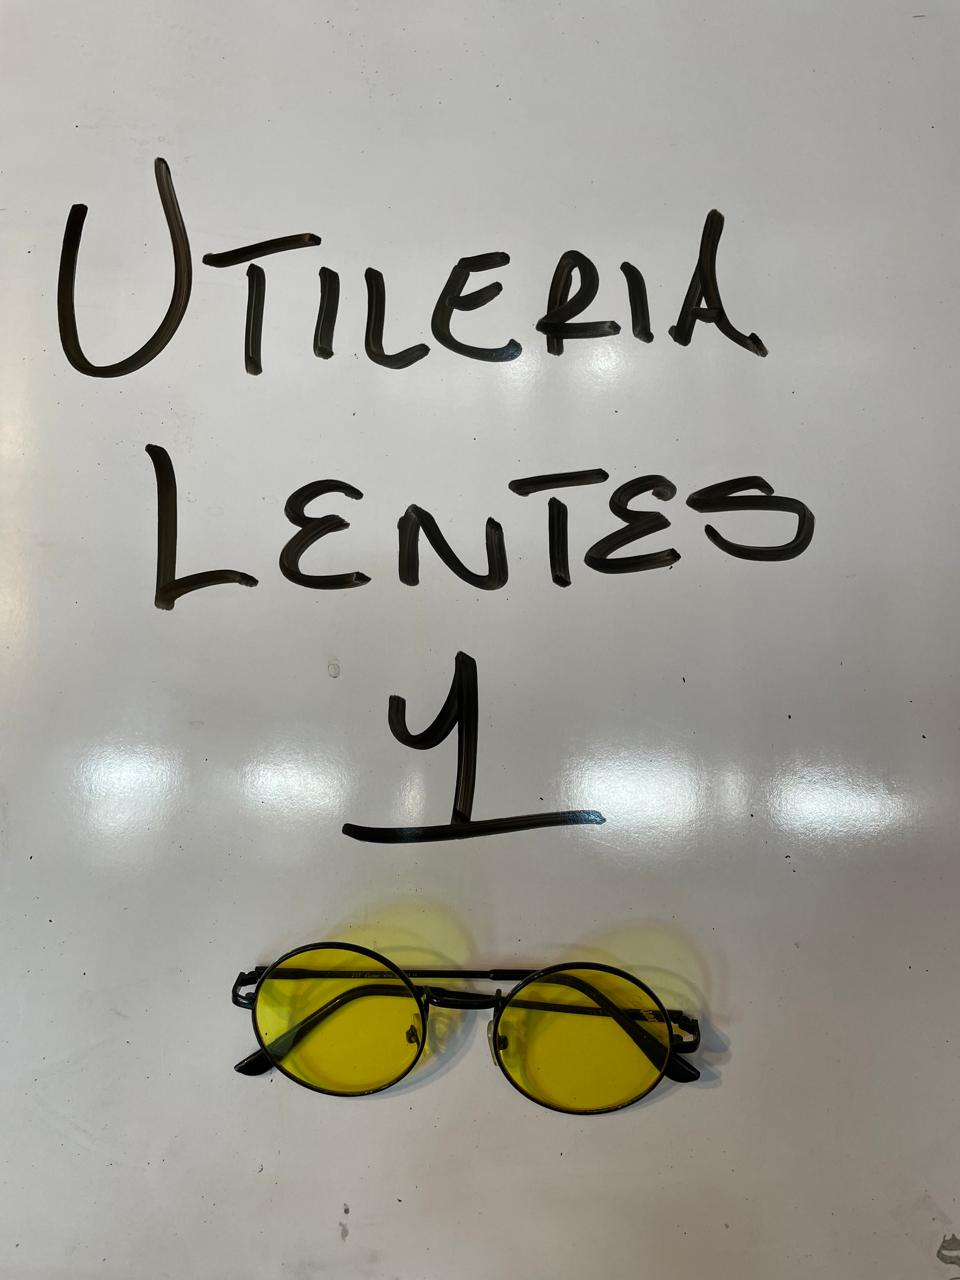 UTILERIA
LENTES
1